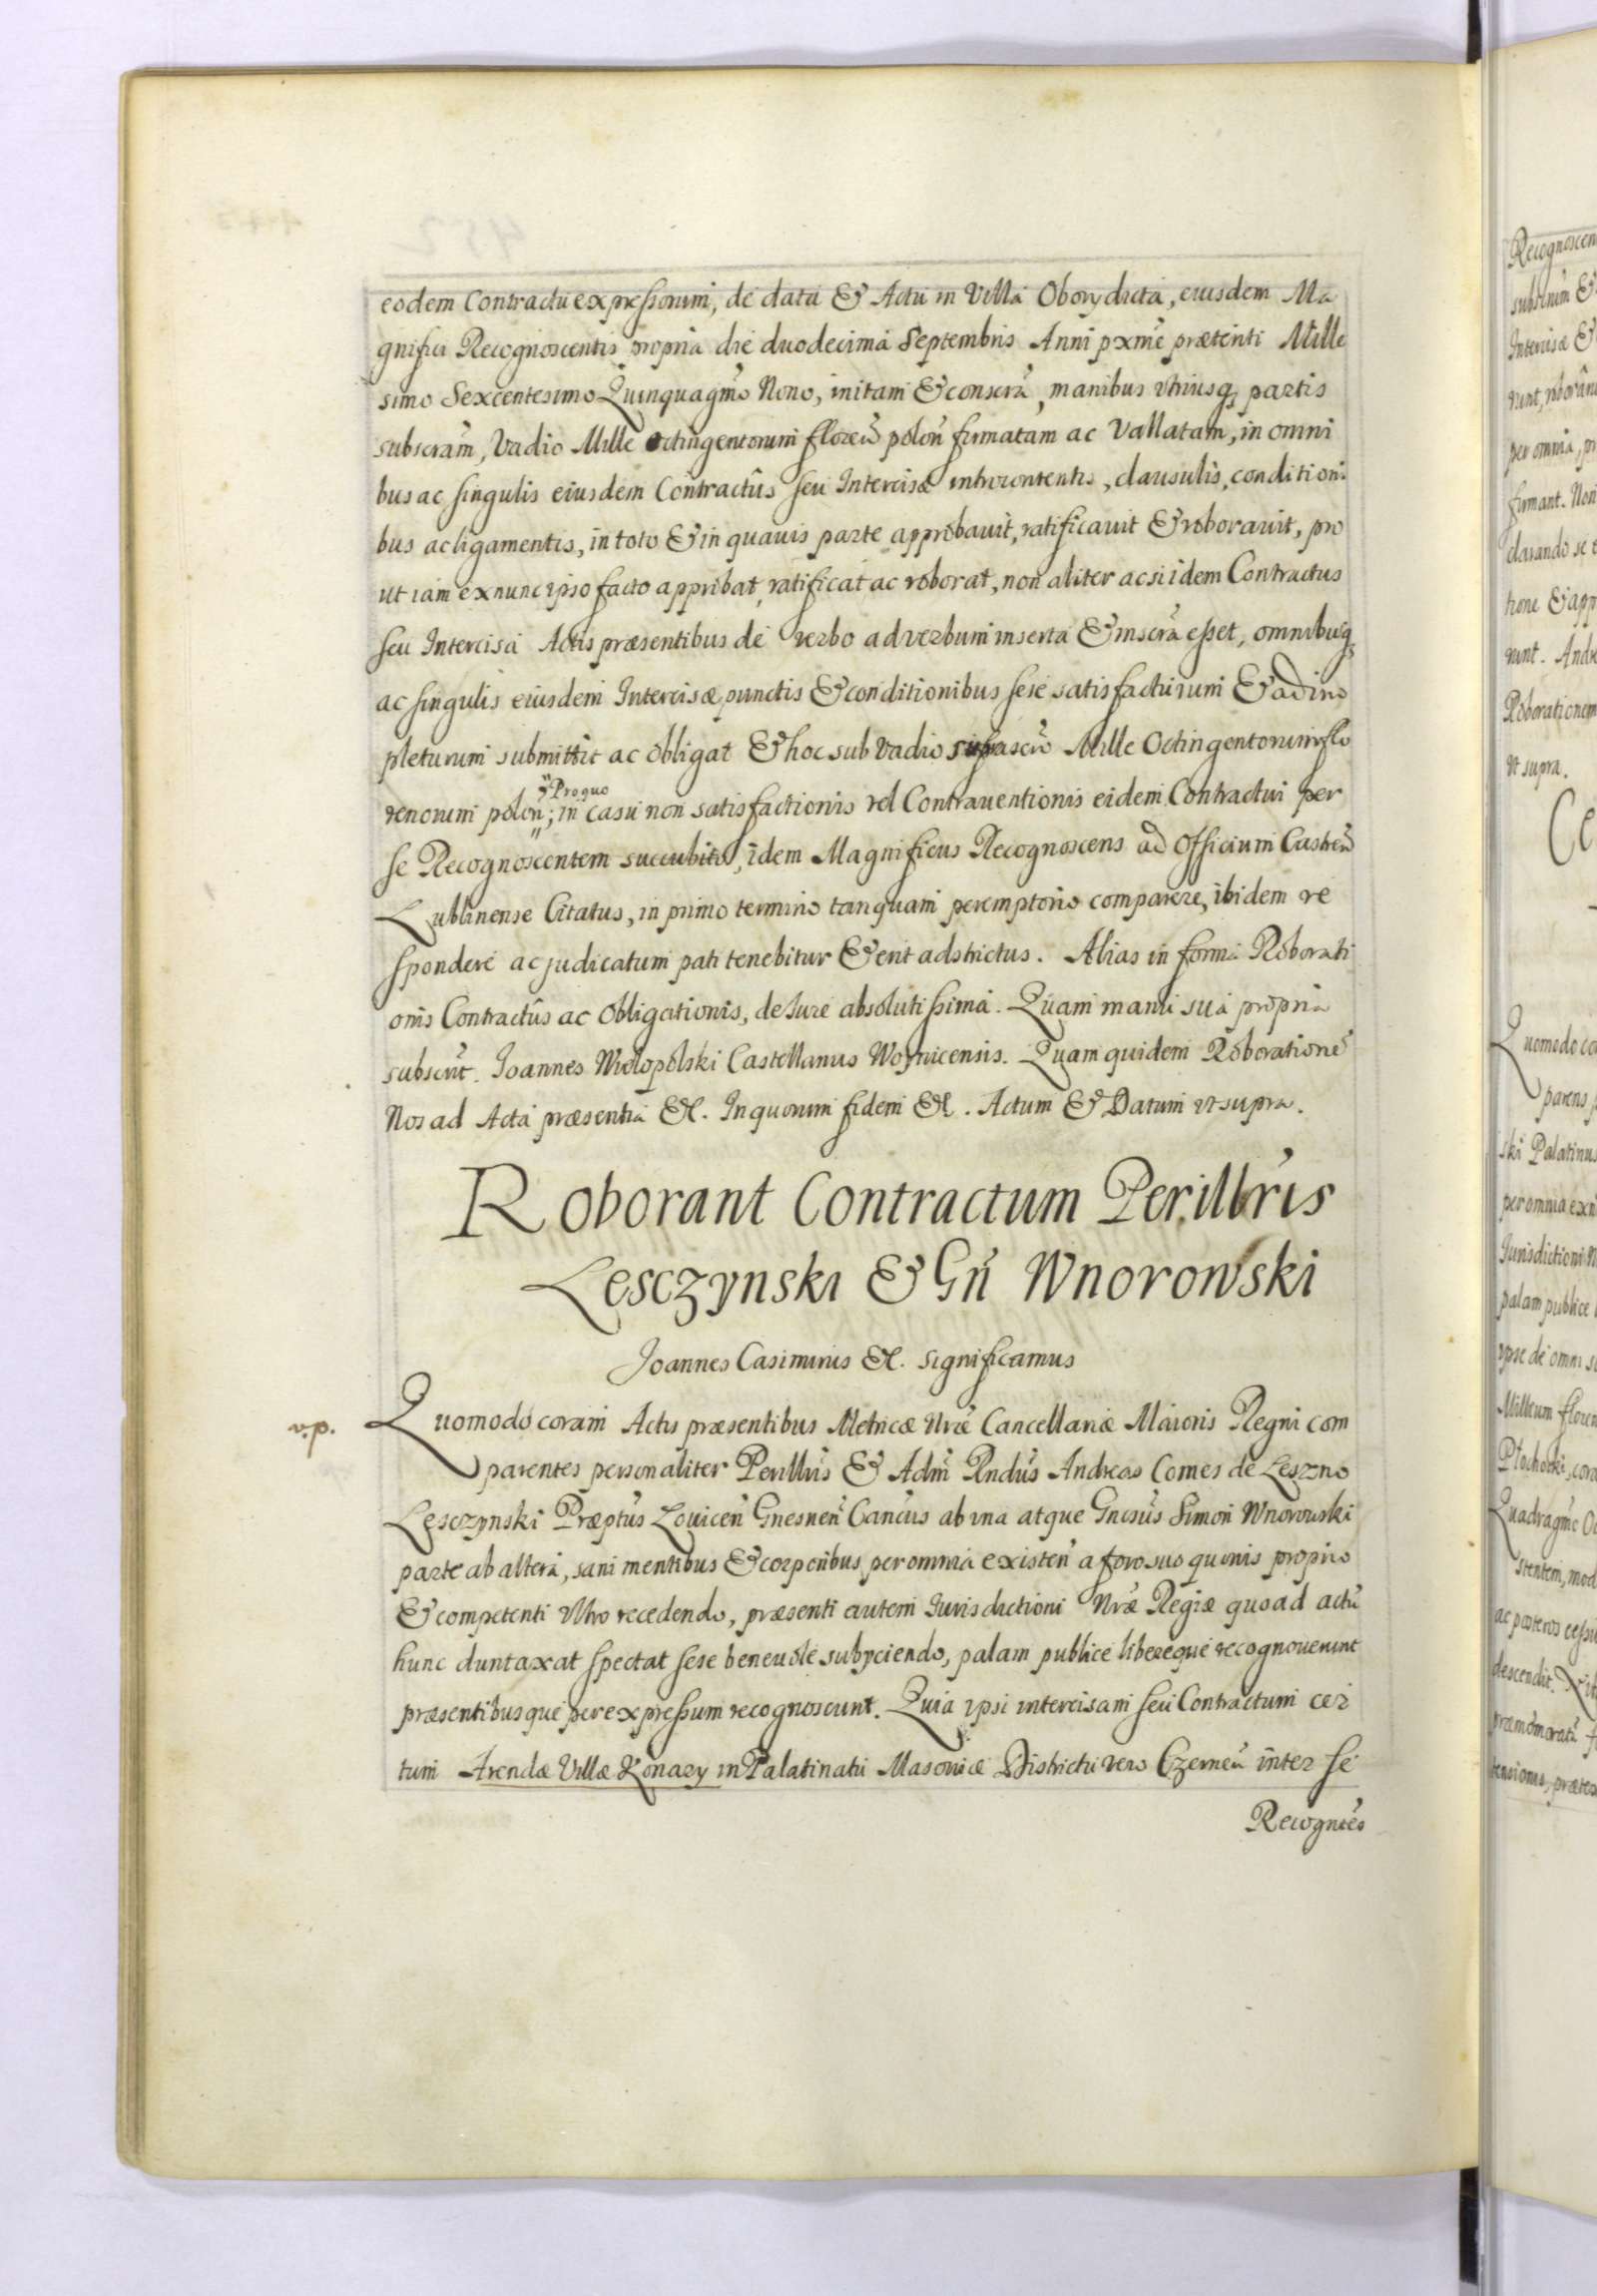 eodem Contractu expressorum, de data & Actu in Villa Obory dicta, eiusdem Ma
gnifici Recognoscentis propria die duodecima Septembris Anni pxme præteriti Mille
simo Sexcentesimo Quinquagmo Nono, initam & conscra, manibus vtriusq partis
subscram, Vadio Mille Octingentorum floren polon firmatam ac Vallatam, in omni
bus ac singulis eiusdem Contractûs seu Intercisæ introcontentis, clausulis, conditioni
bus ac ligamentis, in toto & in quauis parte approbauit, ratificauit & roborauit, pro
ut iam ex nunc ipso facto approbat, ratificat ac roborat, non aliter ac si idem Contractus
seu Intercisa Actis præsentibus de verbo ad verbum inserta & inscra esset, omnibusq
ac singulis eiusdem Intercisæ punctis & conditionibus sese satisfacturum & adim
pleturum submittit ac obligat & hoc sub Vadio suprascro Mille Octingentorum flo
renorum polon; Pro quo in casu non satisfactionis vel Contrauentionis eidem Contractui per
se Recognoscentem succubito, idem Magnificus Recognoscens ad Officium Castren
Lublinense Citatus, in primo termino tanquam peremptorio comparere, ibidem re
spondere ac judicatum pati tenebitur & erit adstrictus. Alias in forma Roborati
onis Contractûs ac Obligationis, de Iure absolutissima. Quam manu sua propria
subscrit. Ioannes Wielopolski Castellanus Woynicensis. Quam quidem Roboratione
Nos ad Acta præsentia &c. In quorum fidem &c. Actum & Datum vt supra.
Roborant Contractum Perillris
Lesczynski & Gn Wnorowski
Joannes Casimirus &c. significamus
v.p.
Quomodo coram Actis præsentibus Metricæ Nræ Cancellariæ Maioris Regni com
parentes personaliter Perillris & Adm Rndus Andreas Comes de Leszno
Lesczynski Præptus Lovicen Gnesnen Cancus ab vna atque Gnesus Simon Wnorowski
parte ab altera, sani mentibus & corporibus per omnia existen a foro suo quouis proprio
& competenti vltro recedendo, præsenti autem Iurisdictioni Nræ Regiæ quo ad actu
hunc duntaxat spectat sese beneuole subyciendo, palam publice libereque recognouerunt
præsentibusque per expressum recognoscunt. Quia ipsi intercisam seu Contractum cer
tum Arendæ Villæ Konary in Palatinatu Masouiæ Districtu vero Czernen inter se
Recogntes